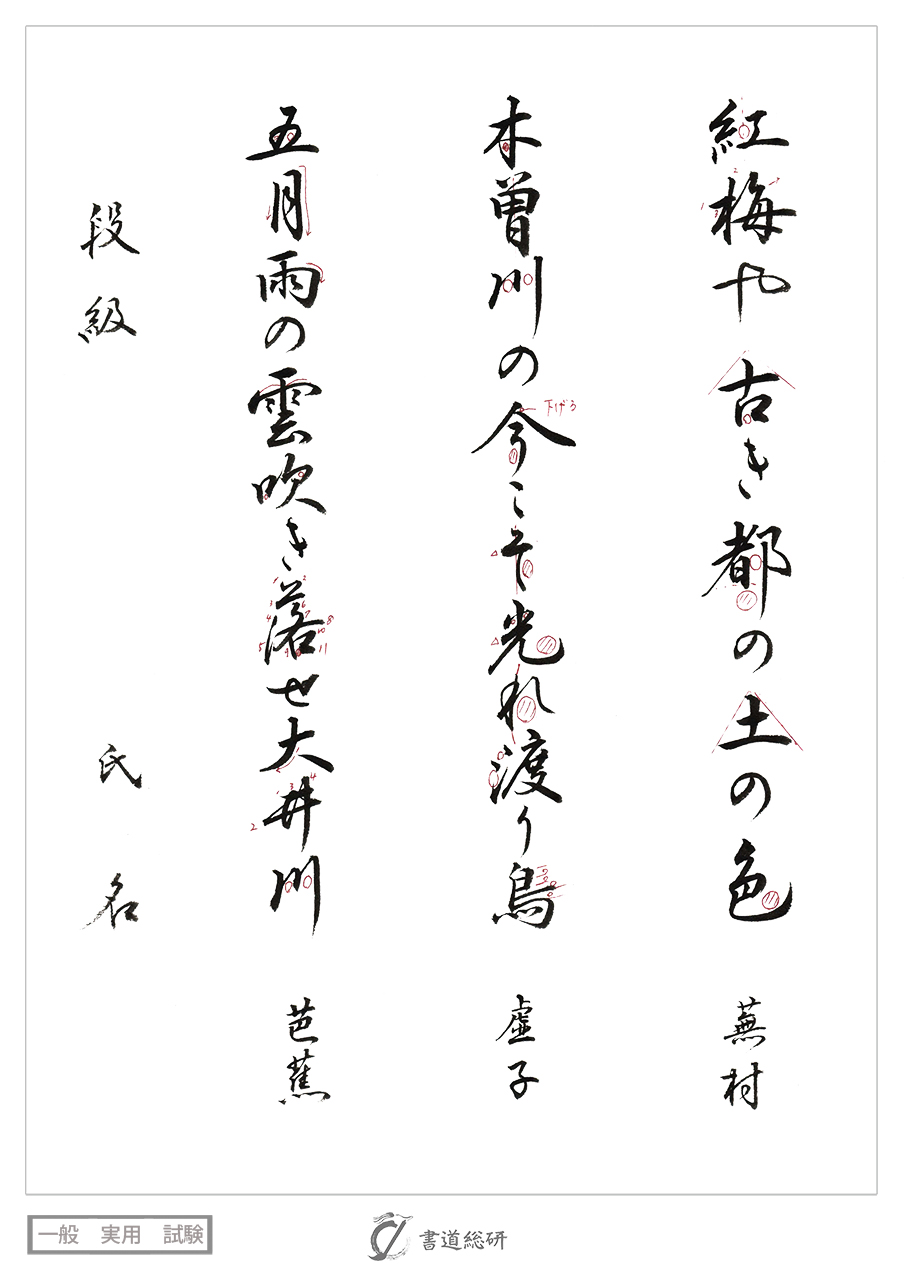 紅梅や古き都の土の色 蕪村
木曽川の今こそ光れ渡り鳥 虚子
下げる
五月雨の雲吹き落せ大井川 芭蕉
段級 氏名
一般 実用 試験
書道総研